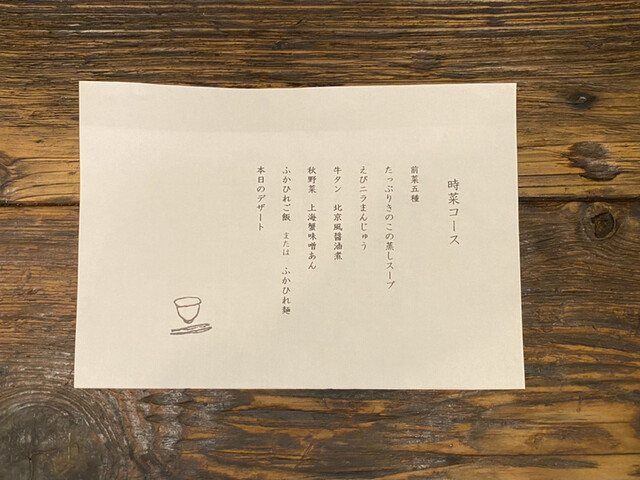 時菜コース
前菜五種
たっぷりきのこの蒸しスープ
えびニラまんじゅう
牛タン 北京風醤油煮
秋野菜 上海蟹味噌あん
ふかひれご飯 または ふかひれ麺
本日のデザート